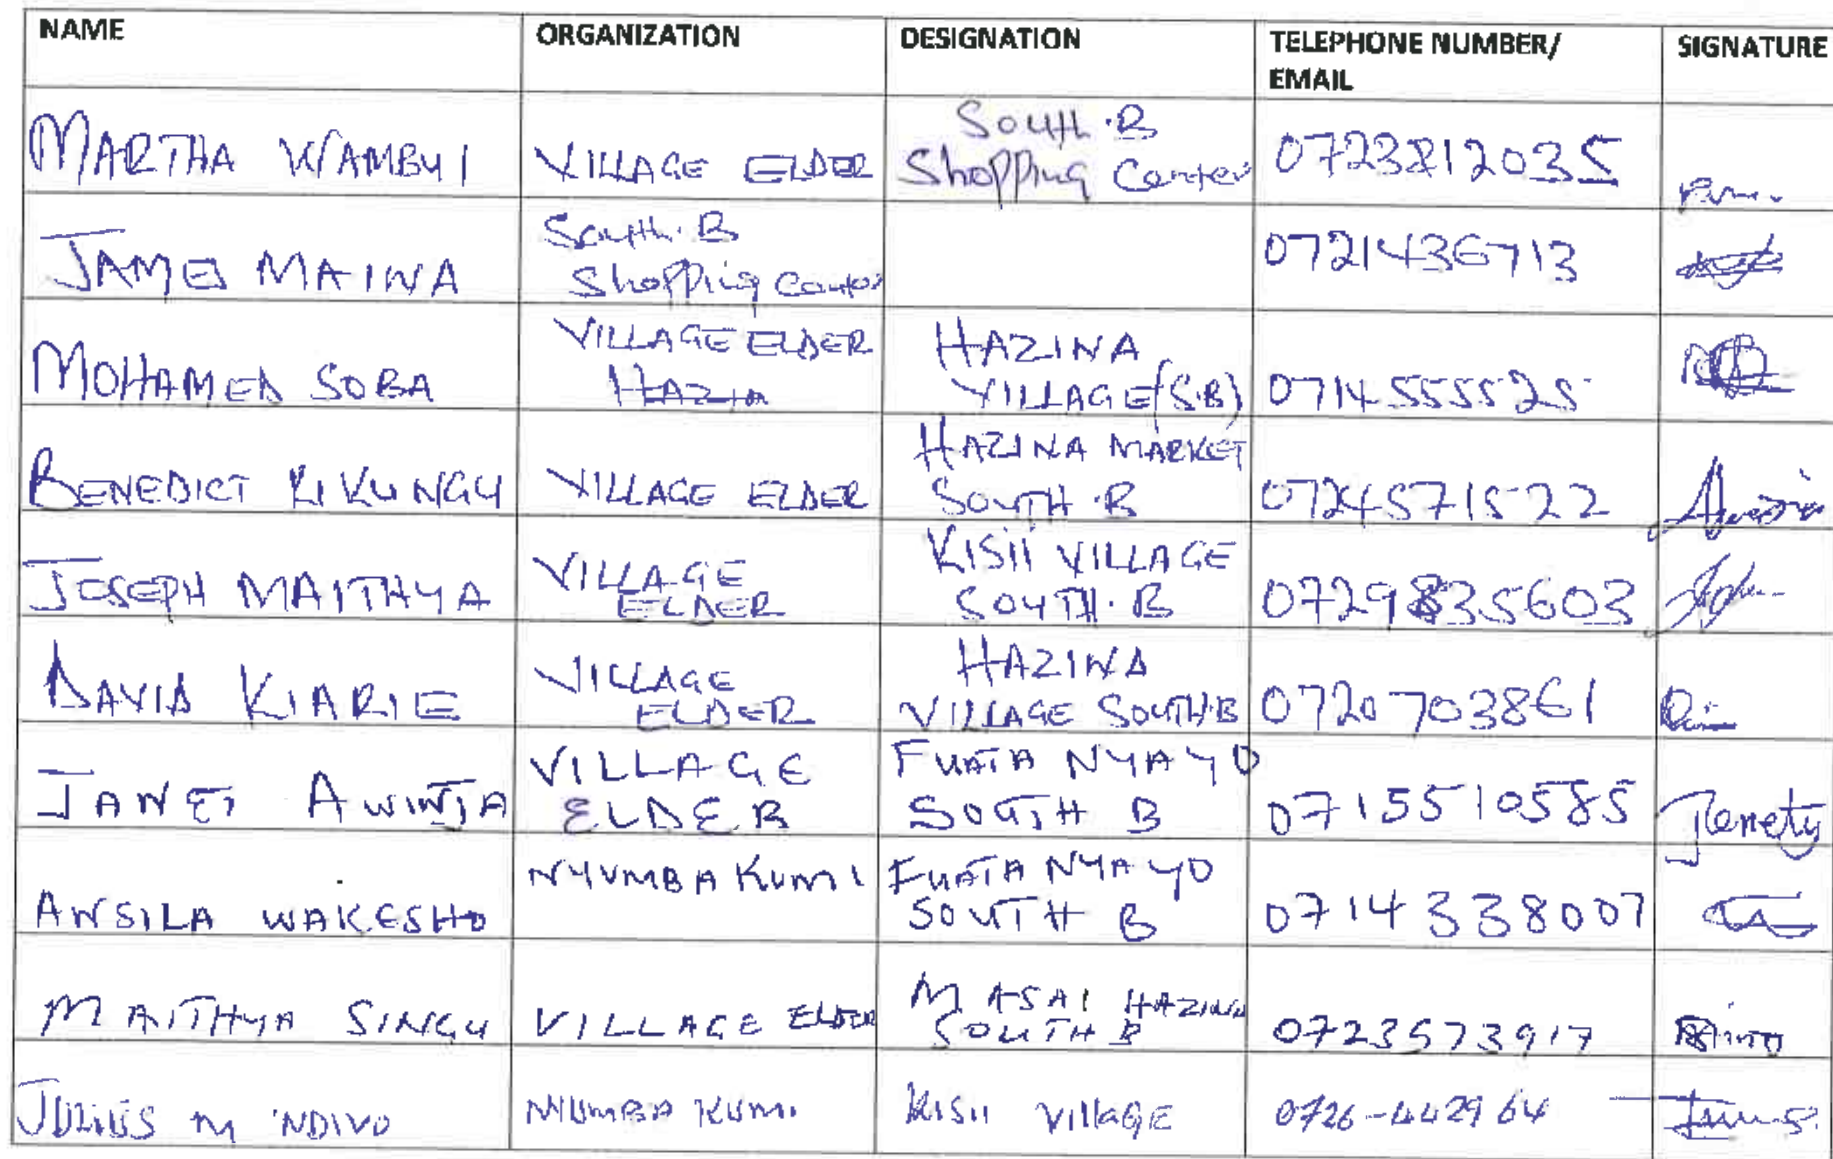 NAME ORGANIZATION DESIGNATION TELEPHONE NUMBER/ EMAIL SIGNATURE
MARTHA WAMBUI VILLAGE ELDER South.B Shopping Center 0723812035
JAMES MAINA South.B Shopping Center 0721436713
MOHAMED SOBA VILLAGE ELDER HAZINA HAZINA VILLAGE (S.B) 0714555525
BENEDICT KIVUNGU VILLAGE ELDER HAZINA MARKET SOUTH.B 0724571522
JOSEPH MAITHYA VILLAGE ELDER KISII VILLAGE SOUTH.B 0729835603
DAVID KIARIE VILLAGE ELDER HAZINA VILLAGE SOUTH.B 0720703861
JANET AWINJA VILLAGE ELDER FUATA NYAYO SOUTH B 0715510585
ANSILA WAKESHO NYUMBA KUMI FUATA NYAYO SOUTH B 0714338007
MAITHYA SINGU VILLAGE ELDER MASAI HAZINA SOUTH B 0723573917
JULIUS M NDIVO NYUMBA KUMI KISII VILLAGE 0726-442964